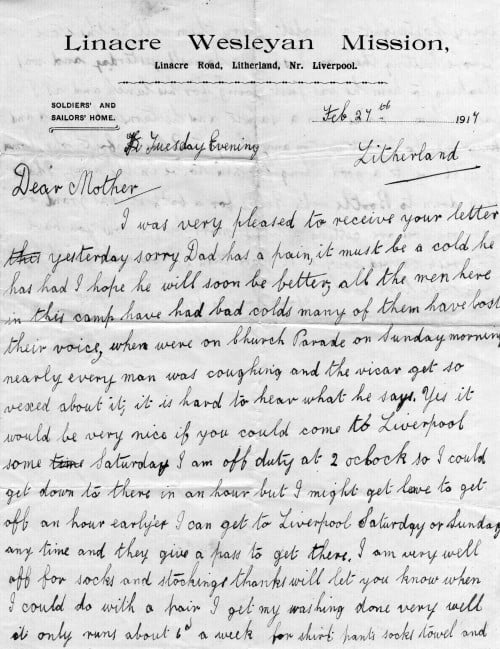 Linacre Wesleyan Mission,
Linacre Road, Litherland, Nr. Liverpool.
SOLDIERS' AND
SAILORS' HOME.
Feb 27th 1917
Tuesday Evening
Litherland
Dear Mother
I was very pleased to receive your letter
this yesterday sorry Dad has a pain, it must be a cold he
has had I hope he will soon be better, all the men here
in this camp have had bad colds many of them have lost
their voice, when were on Church Parade on Sunday morning
nearly every man was coughing and the vicar get so
vexed about it, it is hard to hear what he says. Yes it
would be very nice if you could come to Liverpool
some time Saturday I am off duty at 2 oclock so I could
get down to there in an hour but I might get leve to get
off an hour earlyer I can get to Liverpool Saturday or Sunday
any time and they give a pass to get there. I am very well
off for socks and stockings thanks will let you know when
I could do with a pair I get my washing done very well
it only runs about 6d a week for shirt pants socks towel and